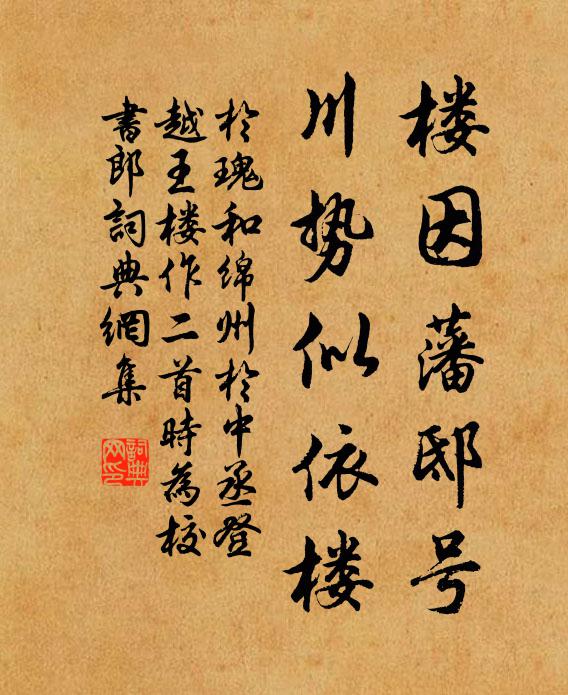 楼因藩邸号
川势似依楼
於瑰和绵州於中丞登
越王楼作二首時為校
書郎詞典網集
詞典
网印